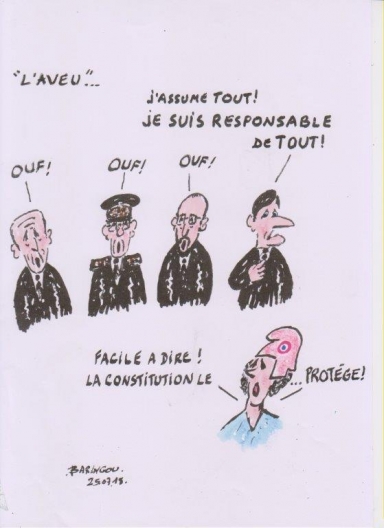 "L'AVEU"...
J'ASSUME TOUT!
JE SUIS RESPONSABLE
DE TOUT!
OUF!
OUF!
OUF!
FACILE A DIRE!
LA CONSTITUTION LE
... PROTÉGE!
BABINGOU.
25.07.18.